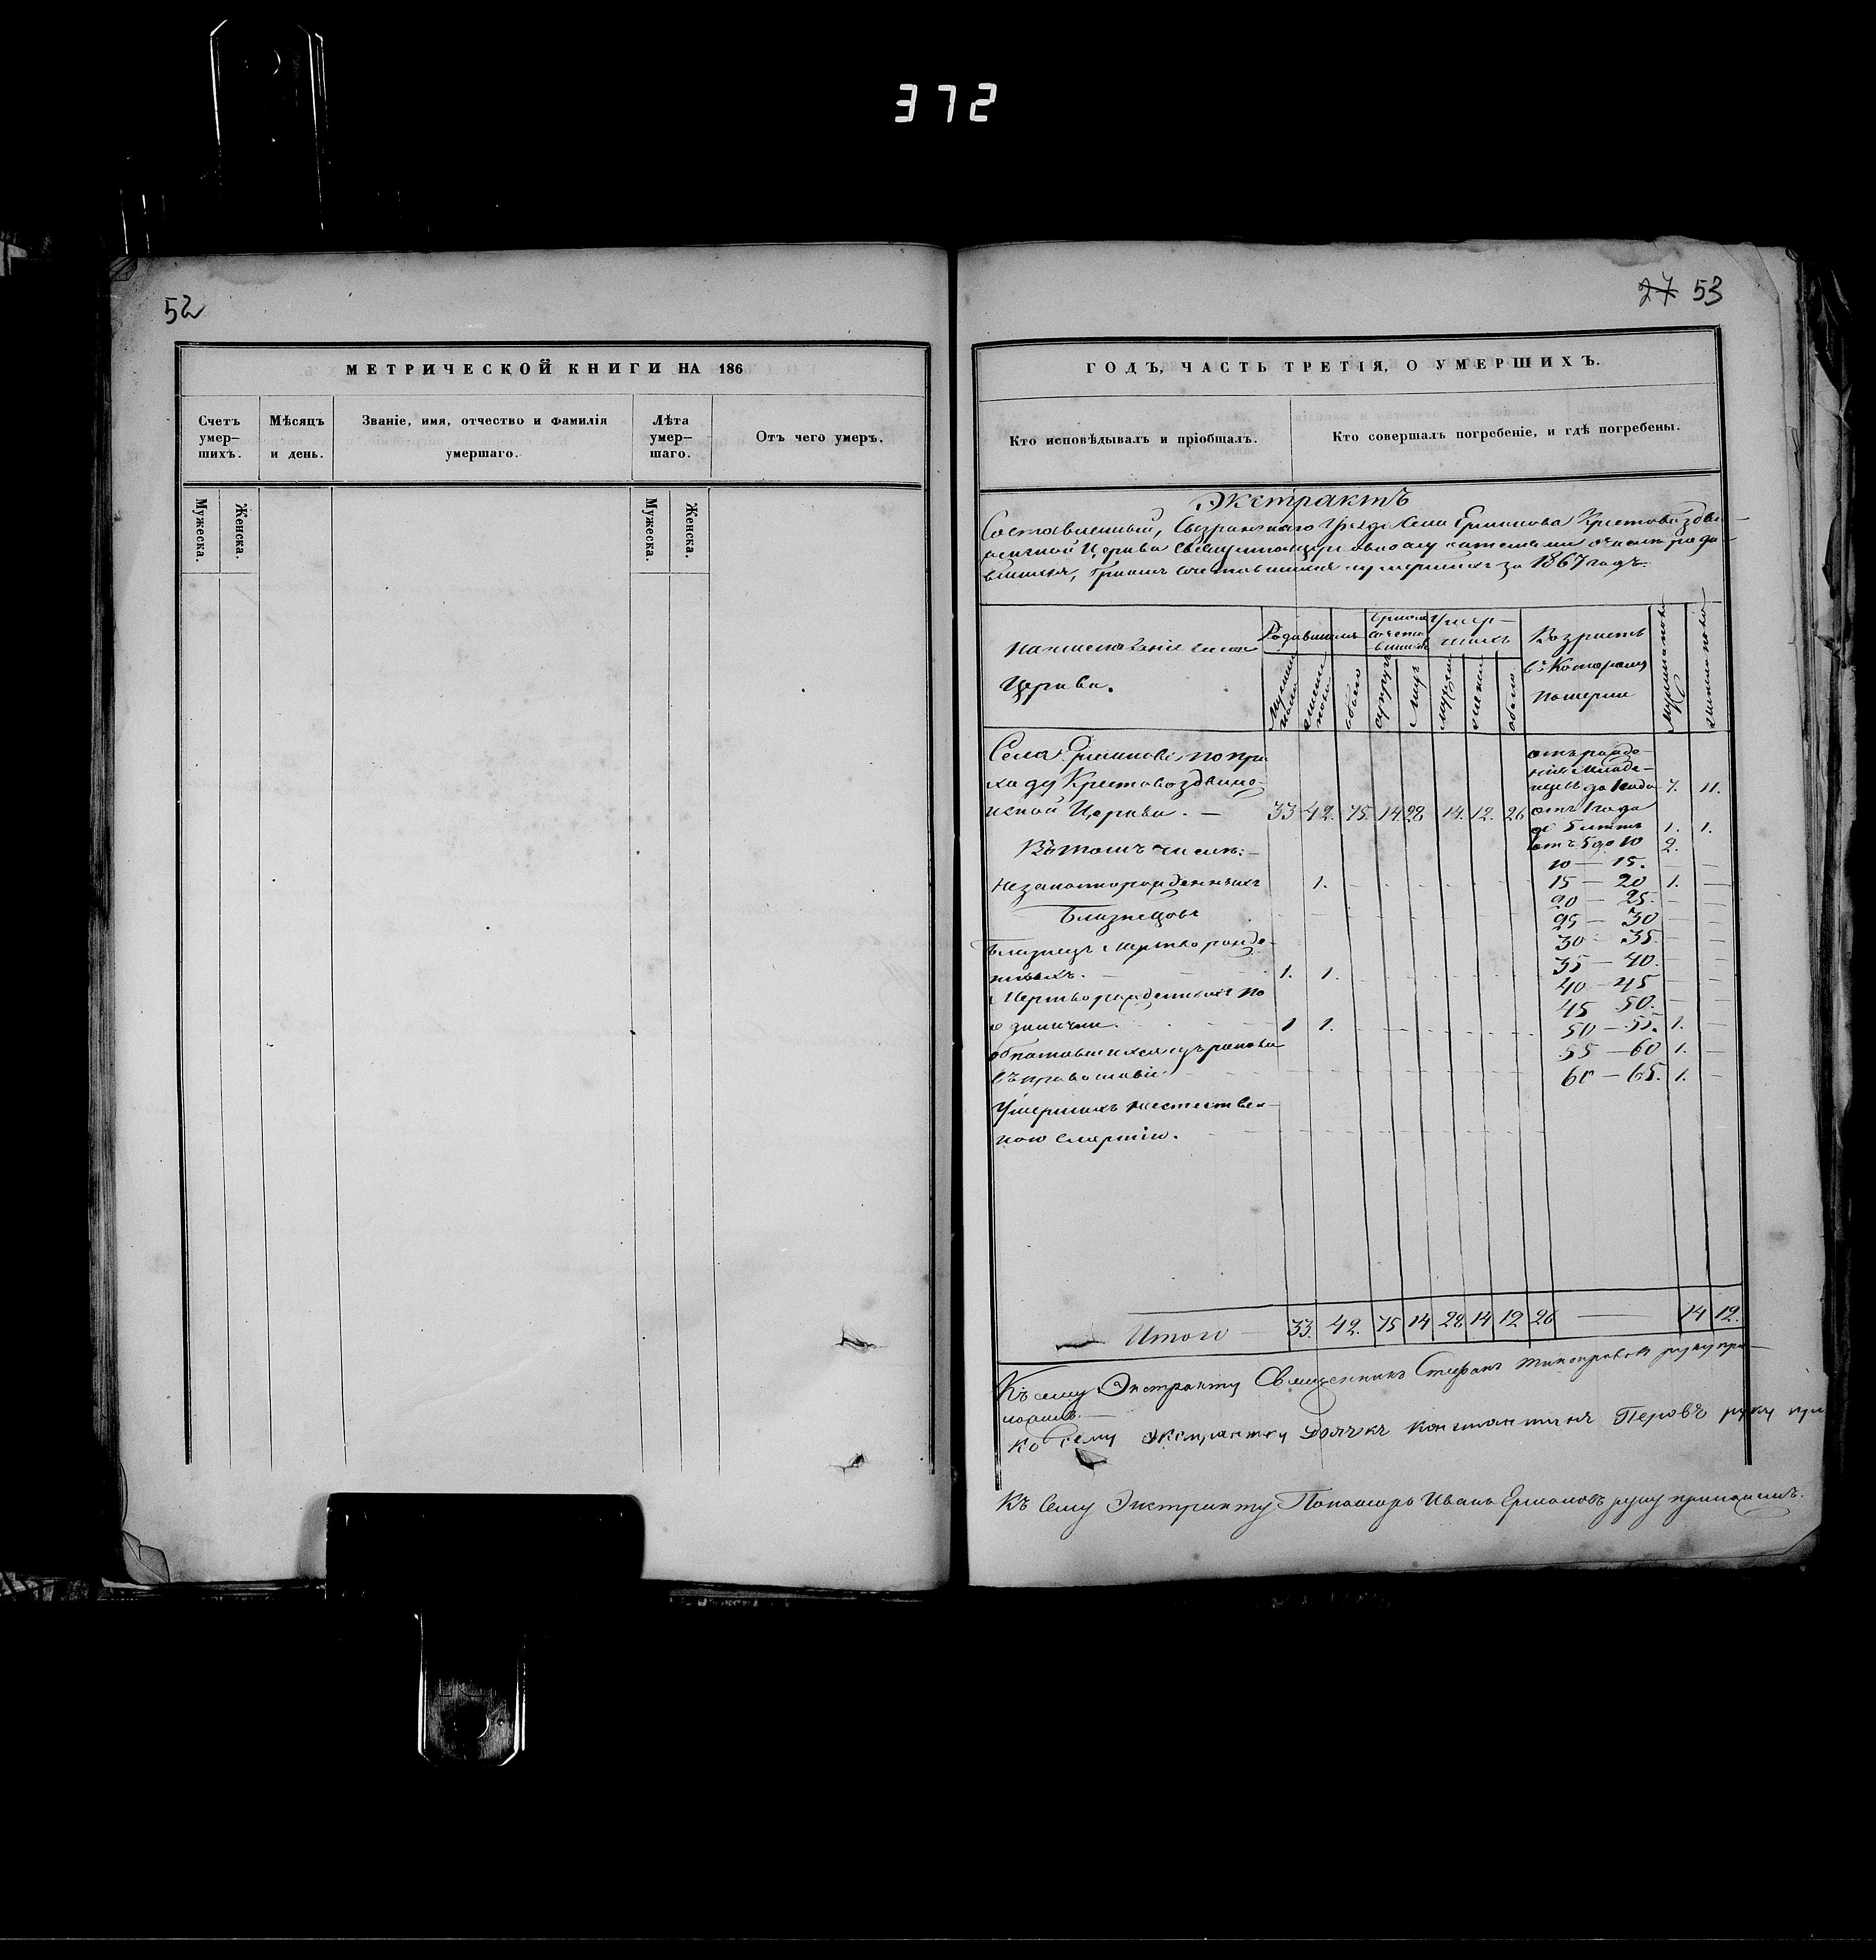 372
52
МЕТРИЧЕСКОЙ КНИГИ НА 186
Счетъ умер–шихъ.
Мѣсяцъ и день.
Званіе, имя, отчество и фамилія умершаго.
Лѣта умер–шаго.
Отъ чего умеръ.
Мужеска.
Женска.
Мужеска.
Женска.
27 53
ГОДЪ, ЧАСТЬ ТРЕТІЯ, О УМЕРШИХЪ.
Кто исповѣдывалъ и пріобщалъ.
Кто совершалъ погребеніе, и гдѣ погребены.
Экстрактъ
Составленный, Сызранскаго Села Крестовоздви–
женской Церкви о числѣ роди–
вшихся, умершихъ за 1867 годъ.
Церкви.
Родившихся
Умер–шихъ
Возрастъ въ Которомъ померли
мужеска пола
женска пола
обоего
супруж
лицъ
мужеск
женск
обоего
мужеска пола
женска пола
Села по при
ходу Крестовоздвиже–
нской Церкви. — 33 42. 75. 14 28 14. 12. 26
Въ томъ числѣ:—
Незаконнорожденныхъ 1.
Близнецовъ
Близнецъ мертворожде–
нныхъ. 1. 1.
Мертворожденныхъ по
одиначке. 1 1.
обратившихся изъ раскола
въ православіе.
Умершихъ неестествен–
ною смертію.
отъ рожде–
нія младе–
нцевъ до 1 года 7. 11.
отъ 1 года
до 5 летъ 1. 1.
отъ 5 до 10 2.
10 — 15. —
15 — 20 1. —
20 — 25. — —
25 — 30 — —
30 — 35. — —
35 — 40. — —
40 — 45 — —
45 50. — —
50 — 55. 1. —
55 — 60 1. —
60 — 65. 1. —
Итого — 33. 42. 75 14 28 14 12 26 — 14 12.
Къ сему Экстракту Священникъ Стефанъ руку при–
ложилъ.—
Ко сему экстракту Дьячекъ Константинъ Перовъ руку при
Къ Сему Экстракту Пономарь Иванъ Ермоловъ руку приложилъ.